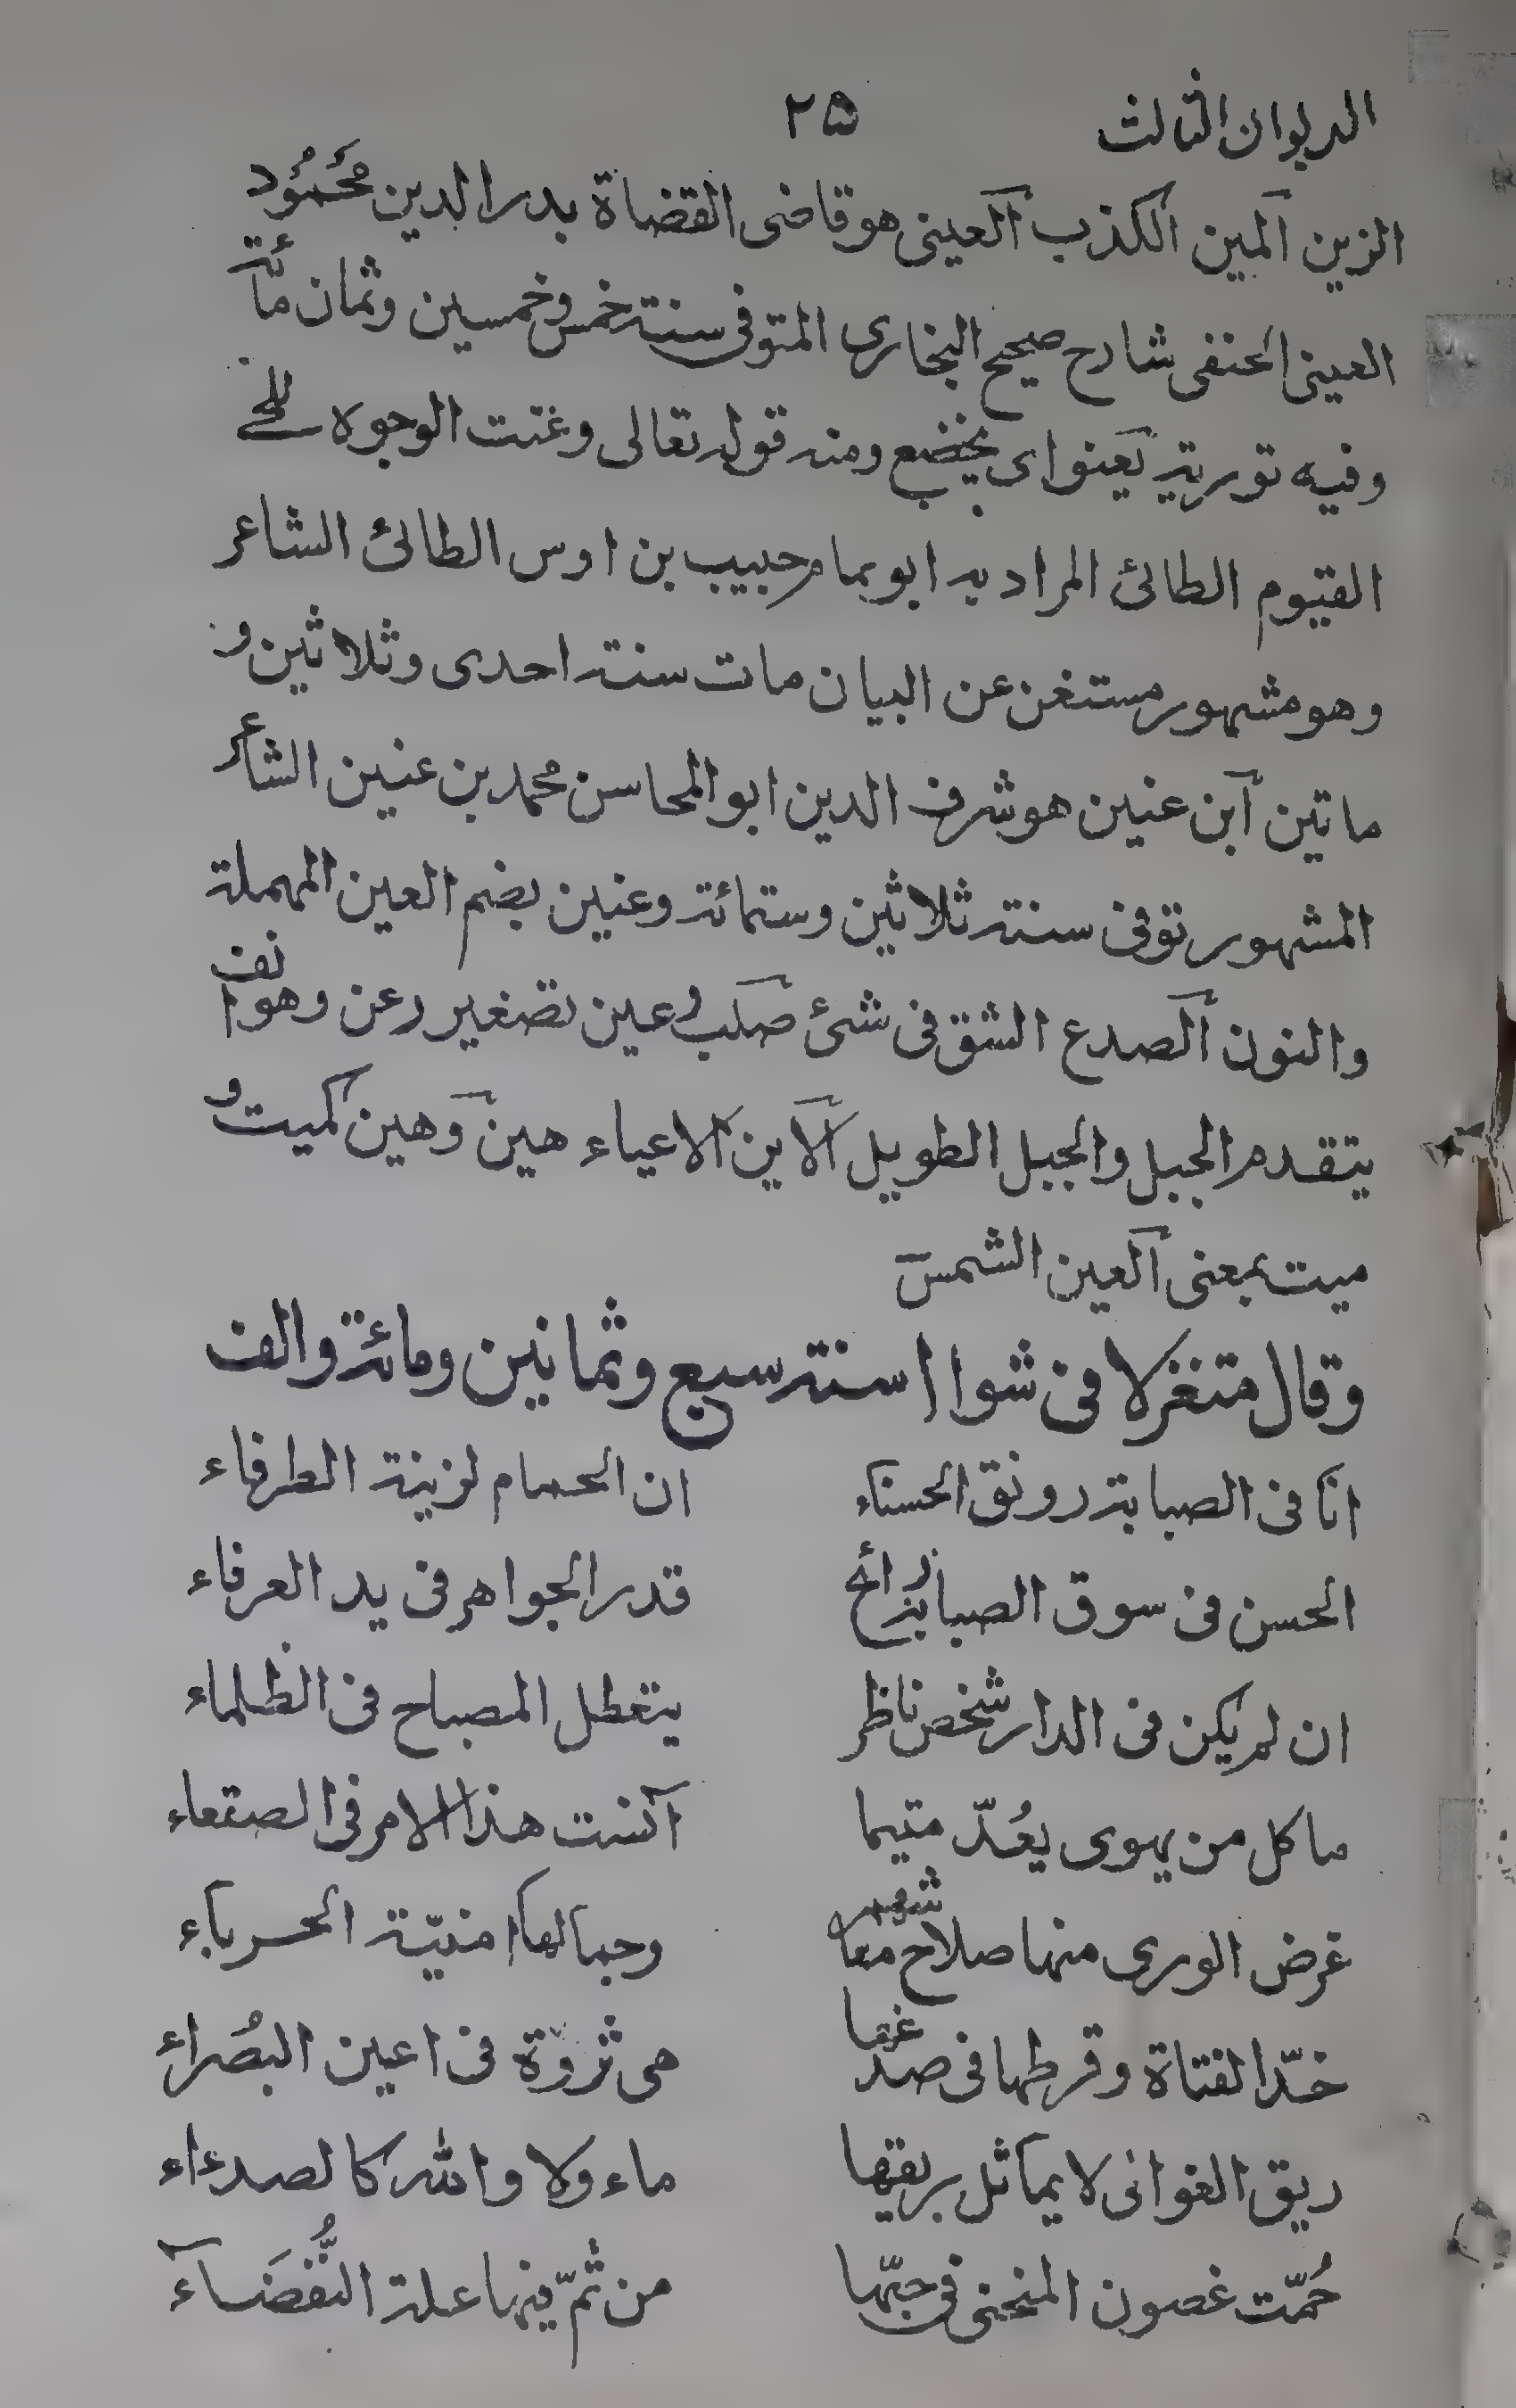 الديوان الثالث ٢٥
الزين المين الكذب العينى هو قاضى القضاة بدر الدين محمُود
العينى الحنفى شارح صحيح البخارى المتوفى سنة خمس وخمسين وثمان مائة
وفيه تورية يعنو اى يخضع ومنه قوله تعالى وعنت الوجوه للحى
القيوم الطائى المراد به ابو تمام حبيب بن اوس الطائى الشاعر
وهو مشهور مستغن عن البيان مات سنة احدى وثلاثين و
ماتين ابن عنين هو شرف الدين ابو المحاسن محمد بن عنين الشاعر
المشهور توفى سنة ثلاثين وستمائة وعنين بضم العين المهملة
والنون الصدع الشق فى شئ صلب رعين تصغير رعن وهو انف
يتقدم الجبل والجبل الطويل الاين الاعياء هين وهين كميت و
ميت بمعنى العين الشمس
وقال متغزلا فى شوال سنة سبع وثمانين ومائة والف
انا فى الصبابة رونق الحسناء ان الحسام لزينة الطرفاء
الحسن فى سوق الصبابة رائج قدر الجواهر فى يد العرفاء
ان لم يكن فى الدار شخص ناظر يتعطل المصباح فى الظلماء
ما كل من يهوى يعُدّ متيما آنست هذا الامر فى الصقعاء
غرض الورى منها صلاح معاشهم وجمالها امنيّة الحرباء
خدّ الفتاة وقرطها فى صدغها هى ثروة فى اعين البُصراء
ريق الغوانى لا يماثل بريقها ماء ولا والله كالصدءاء
حُمّت غصون المنحنى فى حبّها من ثمّ فيها علة النُّفَضَاء